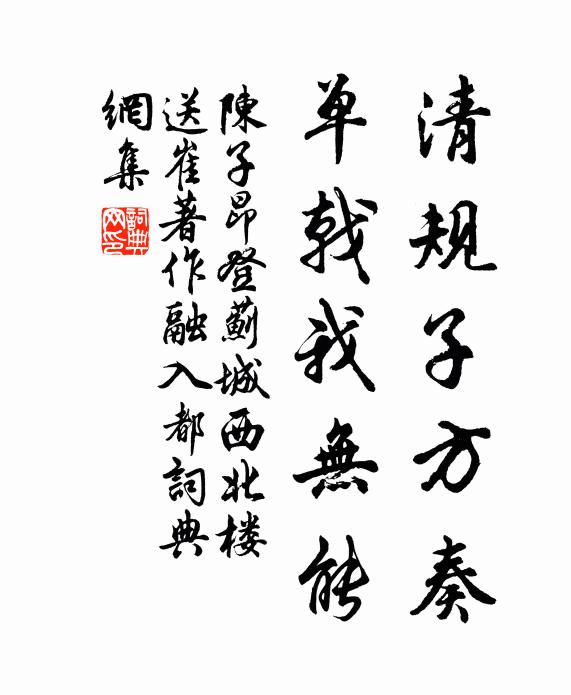 清规子方奏
单戟我無能
陳子昂登薊城西北楼
送崔著作融入都詞典
網集
詞典
网印